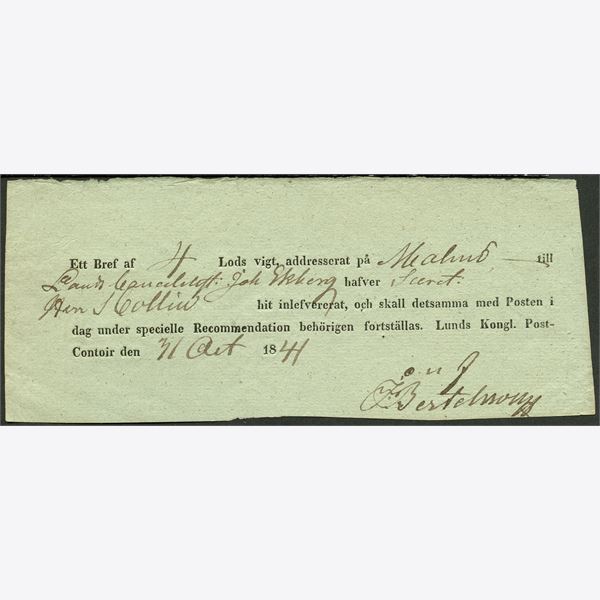 Ett Bref af 4 Lods vigt, addresserat på Malmö till
Lands Joh Ekberg hafver Secret:
Herr Collin hit inlefvererat, och skall detsamma med Posten i
dag under specielle Recommendation behörigen fortställas. Lunds Kongl. Post-
Contoir den 31 Oct 1841